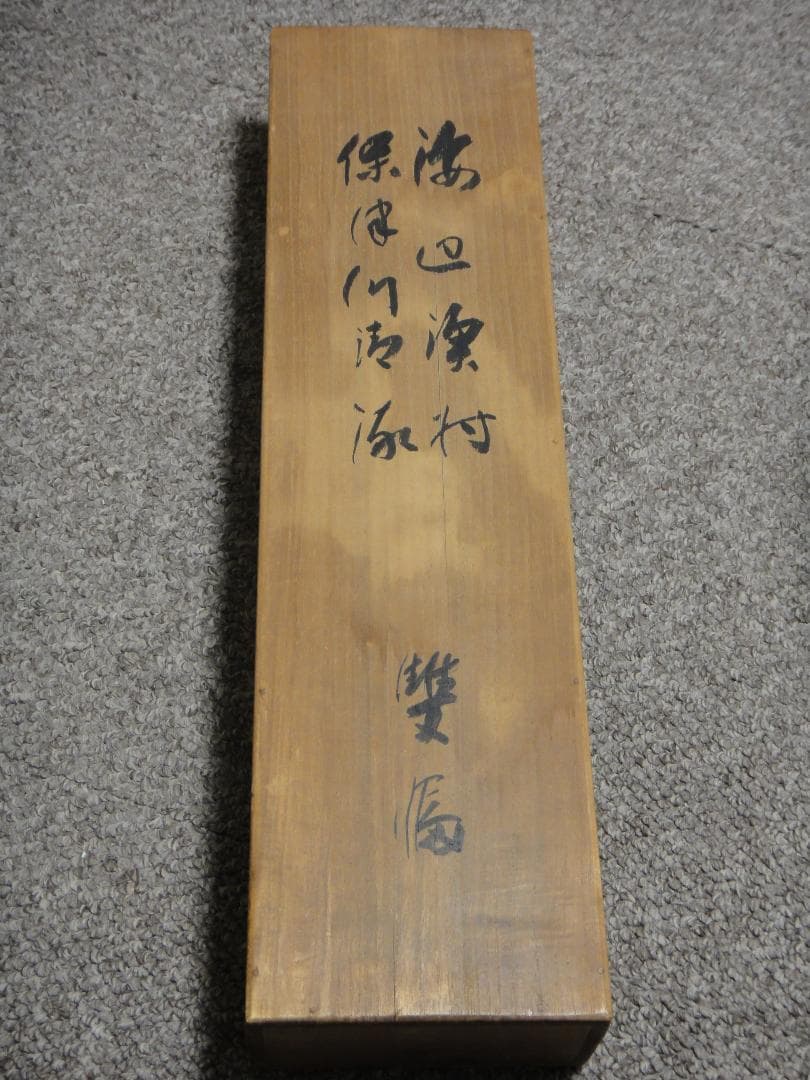 海辺漁村
保津川清流
雙幅